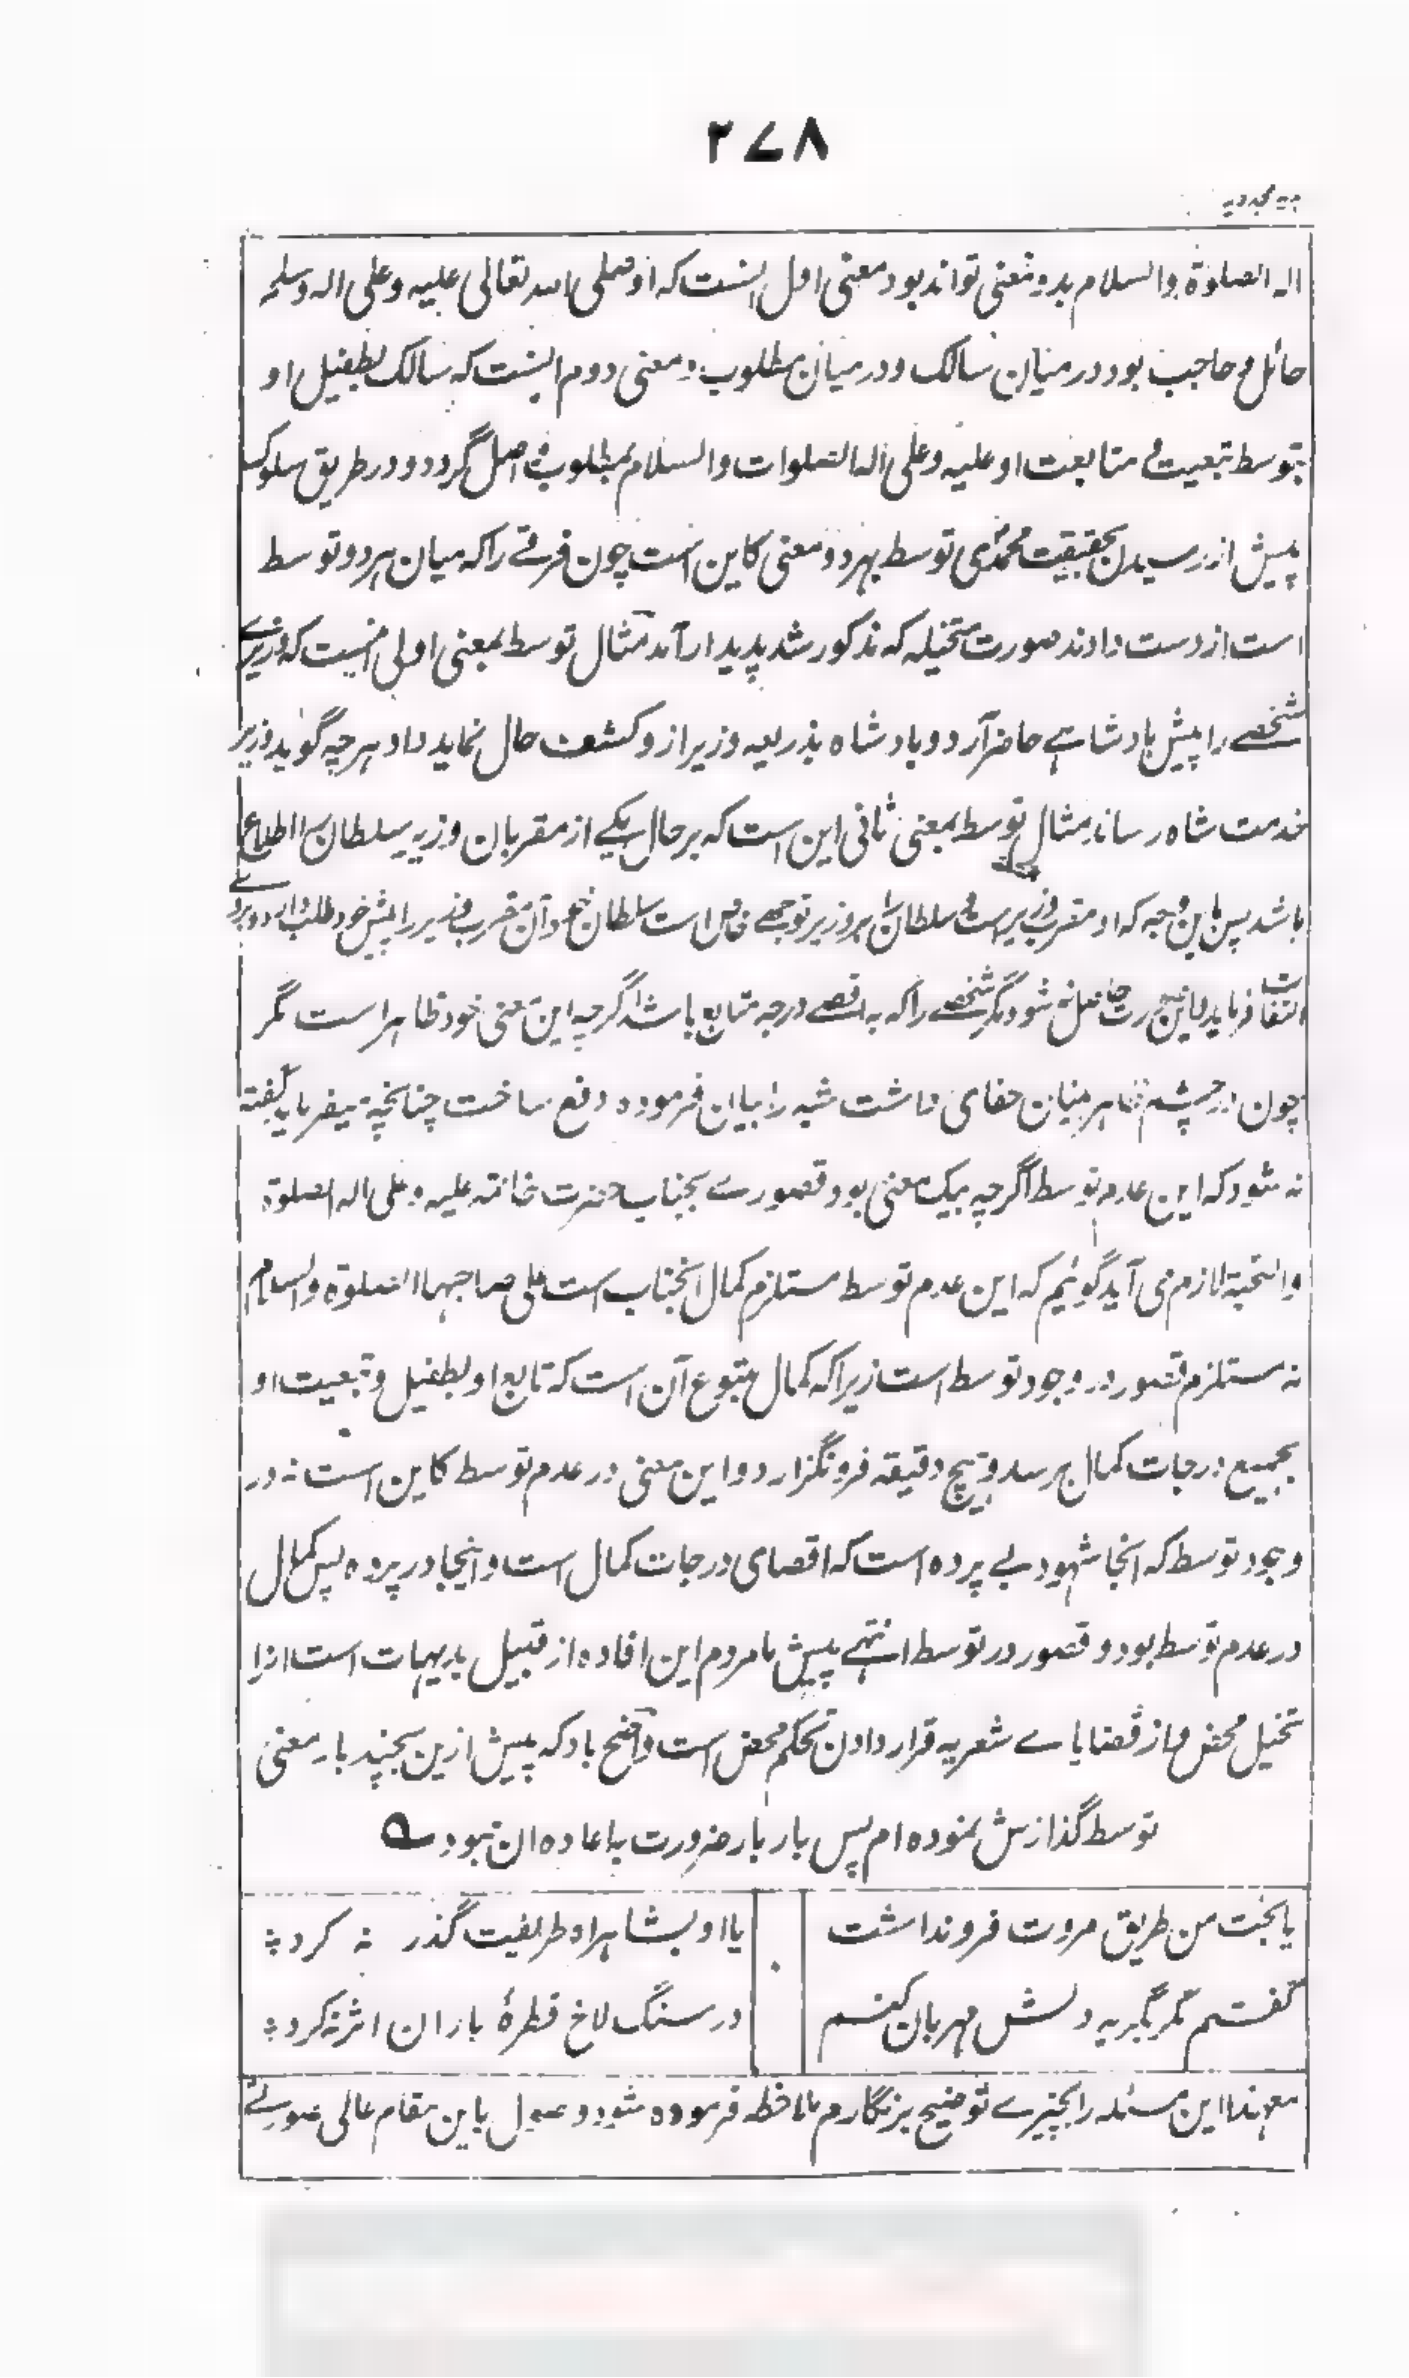 ۲۷۸
اله الصلوة والسلام بدو معنی تواند بود معنی اول اینست که او صلی الله تعالی علیه و علی اله وسلم
حائل و حاجب بود در میان سالک و در میان مطلوب و معنی دوم اینست که سالک بطفیل او
بتوسط تبعیت و متابعت او علیه و علی اله الصلوات والسلام بمطلوب واصل گردد و در طریق سلوک
پیش از رسیدن بحقیقت محمدی توسط بهر دو معنی کاین است چون فرقے را که میان هر دو توسط
است از دست دادند صورت متخیله که مذکور شد پدیدار آمد مثال توسط بمعنی اولی اینست که وزیرے
شخصے را پیش بادشاہے حاضر آرد و بادشاه بذریعه وزیر ازو کشف حال نماید و او هرچه گوید وزیر
خدمت شاه رساند مثال توسط بمعنی ثانی این است که بر حال یکے از مقربان وزیر سلطان را اطلاع
باشد پس باین وجه که او مقرب وزیر است و سلطان را بر وزیر توجهے خاص است سلطان خود آن مقرب وزیر را پیش خود طلب دارد و بروے
التفات فرماید و این صورت حاصل نشود مگر شخصے را که به اقصے درجه متابع باشد اگرچه این معنی خود ظاهر است مگر
چون در چشم ظاهر بینان خفای داشت شبه را بیان فرموده دفع ساخت چنانچه میفرماید گفته
نه شود که این عدم توسط اگرچه بیک معنی بود قصورے بجناب حضرت خاتمه علیه و علی اله الصلوة
والتحیة لازم می آید گوئیم که این عدم توسط مستلزم کمال آنجناب است علی صاحبها الصلوة والسلام
نه مستلزم قصور در وجود توسط است زیرا که کمال متبوع آن است که تابع او بطفیل و تبعیت او
بجمیع درجات کمال برسد و هیچ دقیقه فرو نگزارد و این معنی در عدم توسط کاین است نه در
وجود توسط که آنجا شهود بے پرده است که اقصای درجات کمال است و اینجا در پرده پس کمال
در عدم توسط بود و قصور در توسط انتهے پیش ما مردم این افاده از قبیل بدیهیات است انرا
تخیل محض و از قضایاے شعریه قرار دادن تحکم محض است واضح باد که پیش ازین بچند بار معنی
توسط گذارش نموده ام پس بار بار ضرورت به اعاده ان نبود
یا بخت من طریق مروت فرو نداشت
یا او بشاهراه طریقت گذر نه کرد
گفتم مگر بگریه دلش مهربان کنم
در سنگ لاخ قطرۀ باران اثر نکرد
معهذا این مسئله را بچیزے توضیح بر نگارم ملاحظه فرموده شود وصول باین مقام عالی